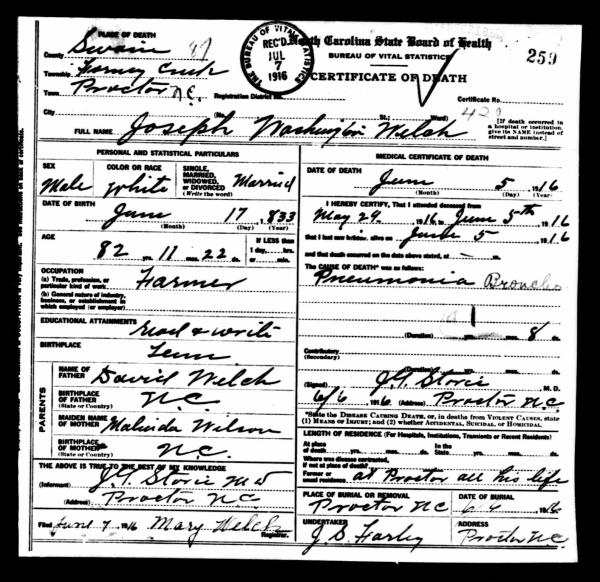 PLACE OF DEATH
County Swain 87
Township Forney Creek
Town Proctor N.C.
City
THE BUREAU OF VITAL STATISTICS
REC'D
JUL
7
1916
North Carolina State Board of Health
BUREAU OF VITAL STATISTICS
CERTIFICATE OF DEATH
259
Registration District No.
Certificate No. 420
(No. St.; Ward)
[If death occurred in
a hospital or institution,
give its NAME instead of
street and number.]
FULL NAME Joseph Washington Welch
PERSONAL AND STATISTICAL PARTICULARS
SEX
Male
COLOR OR RACE
white
SINGLE,
MARRIED,
WIDOWED,
or DIVORCED
(Write the word)
Married
DATE OF BIRTH
June 17 1833
(Month) (Day) (Year)
AGE
82 yrs. 11 mos. 22 ds.
If LESS than
1 day,....hrs.
or....min.
OCCUPATION
(a) Trade, profession, or
particular kind of work
Farmer
(b) General nature of industry,
business, or establishment in
which employed (or employer)
EDUCATIONAL ATTAINMENTS read & write
BIRTHPLACE
Tenn
PARENTS
NAME OF
FATHER
David Welch
BIRTHPLACE
OF FATHER
(State or Country)
N.C.
MAIDEN NAME
OF MOTHER
Malinda Wilson
BIRTHPLACE
OF MOTHER
(State or Country)
N.C.
THE ABOVE IS TRUE TO THE BEST OF MY KNOWLEDGE
(Informant) J.T. Storie MD
(Address) Proctor NC
Filed June 7 1916 Mary Welch
Registrar.
MEDICAL CERTIFICATE OF DEATH
DATE OF DEATH
June 5 1916
(Month) (Day) (Year)
I HEREBY CERTIFY, That I attended deceased from
May 29 1916 to June 5th 1916
that I last saw him alive on June 5 1916
and that death occurred on the date above stated, at m.
The CAUSE OF DEATH* was as follows:
Pneumonia Broncho
(Duration) yrs. mos. 8 ds.
Contributory
(Secondary)
(Duration) yrs. mos. ds.
(Signed) J.T. Storie M.D.
6/6 1916 (Address) Proctor N.C.
*State the DISEASE CAUSING DEATH, or, in deaths from VIOLENT CAUSES, state
(1) MEANS OF INJURY; and (2) whether ACCIDENTAL, SUICIDAL, OR HOMICIDAL.
LENGTH OF RESIDENCE (For Hospitals, Institutions, Transients or Recent Residents)
At place
of death yrs. mos. ds.
In the
State yrs. mos. ds.
Where was disease contracted,
if not at place of death?
Former or
usual residence at Proctor all his life
PLACE OF BURIAL OR REMOVAL
Proctor NC
DATE OF BURIAL
1916
UNDERTAKER
J.S. Farley
ADDRESS
Proctor N.C.